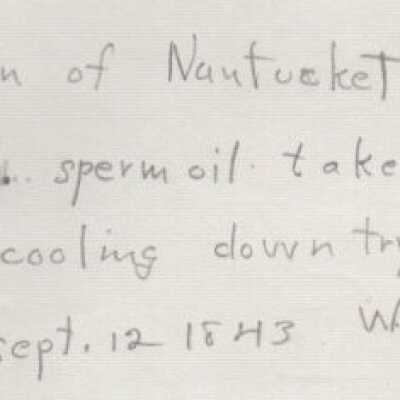 n of Nantucket
. sperm oil. take
cooling down try
sept. 12 1843 Wh